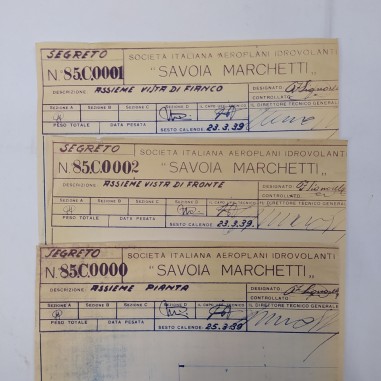 SEGRETO
SOCIETÀ ITALIANA AEROPLANI IDROVOLANTI
N° 85.C.0001 "SAVOIA MARCHETTI"
DESCRIZIONE: ASSIEME VISTA DI FIANCO
DESIGNATO:
CONTROLLATO
SEZIONE A SEZIONE B SEZIONE C SEZIONE D IL CAPO IL DIRETTORE TECNICO GENERALE
PESO TOTALE DATA PESATA SESTO CALENDE 23.3.39
SEGRETO
SOCIETÀ ITALIANA AEROPLANI IDROVOLANTI
N° 85.C.0002 "SAVOIA MARCHETTI"
DESCRIZIONE: ASSIEME VISTA DI FRONTE
DESIGNATO:
CONTROLLATO
SEZIONE A SEZIONE B SEZIONE C SEZIONE D IL CAPO IL DIRETTORE TECNICO GENERALE
PESO TOTALE DATA PESATA SESTO CALENDE 23.3.39
SEGRETO
SOCIETÀ ITALIANA AEROPLANI IDROVOLANTI
N° 85.C.0000 "SAVOIA MARCHETTI"
DESCRIZIONE: ASSIEME PIANTA
DESIGNATO:
CONTROLLATO
SEZIONE A SEZIONE B SEZIONE C SEZIONE D IL CAPO IL DIRETTORE TECNICO GENERALE
PESO TOTALE DATA PESATA SESTO CALENDE 25.3.39